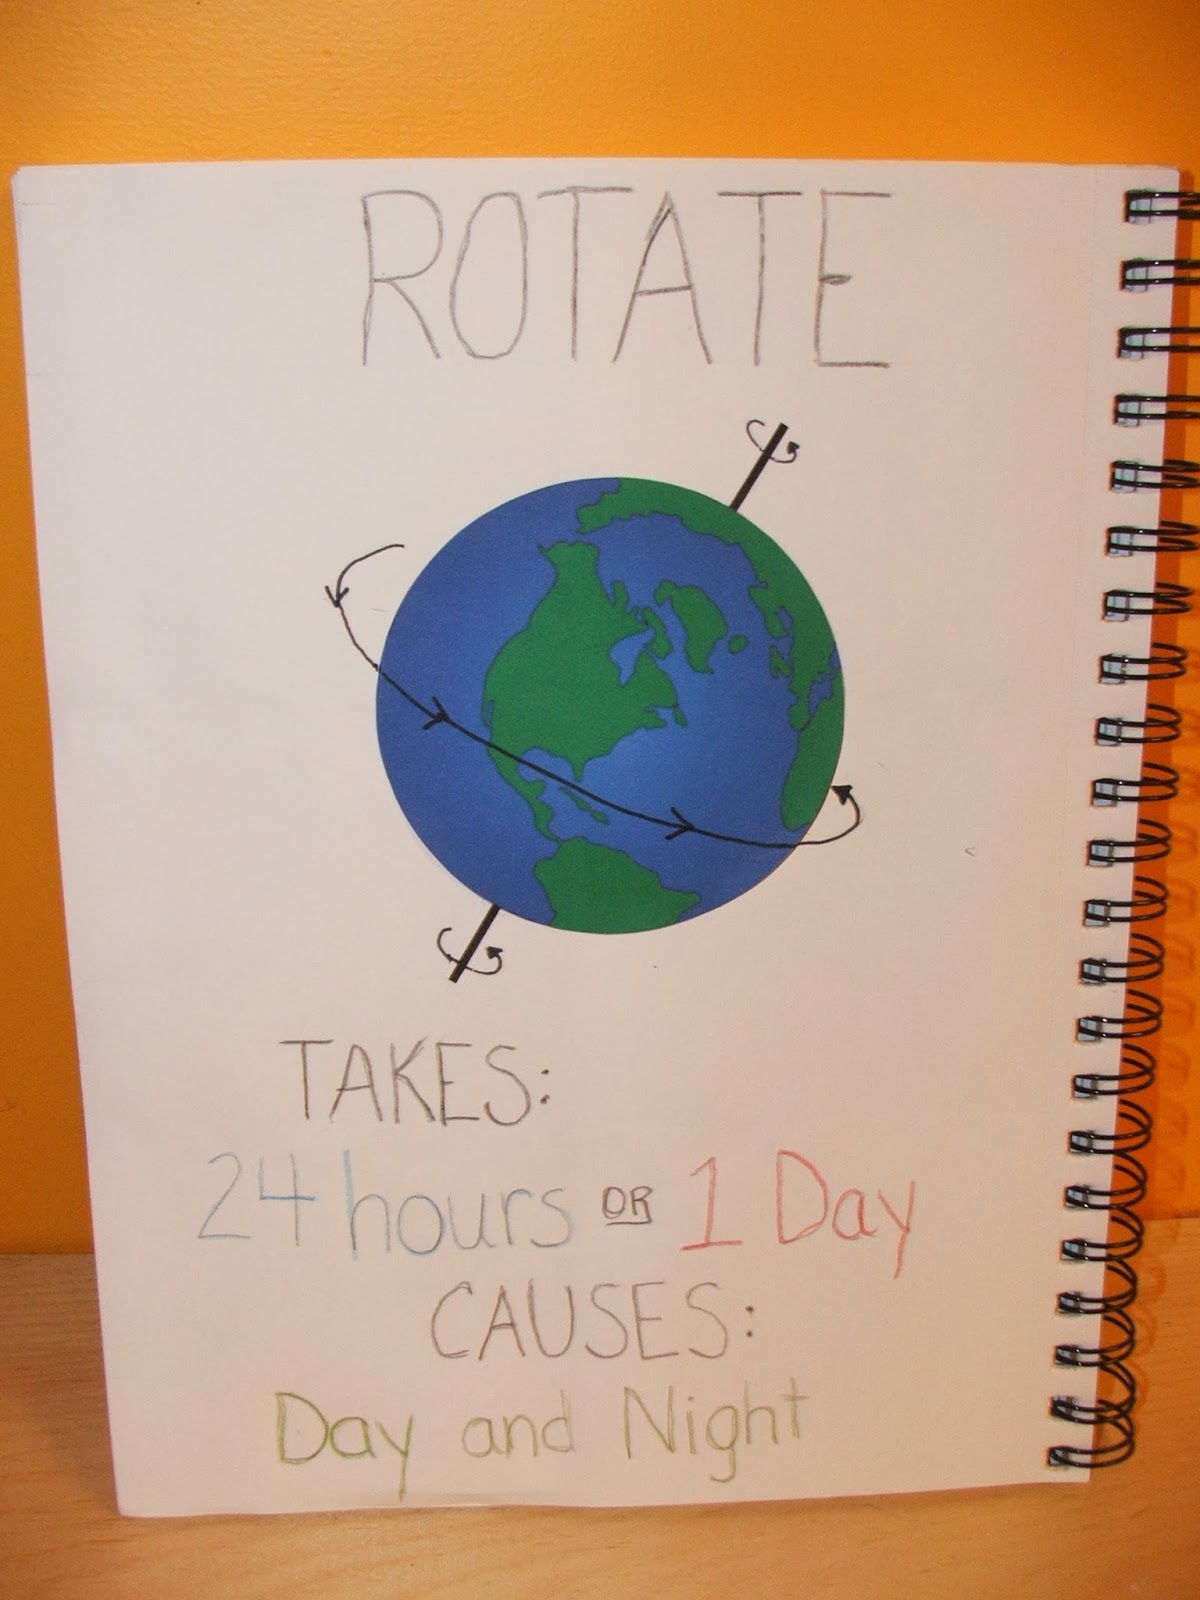 ROTATE
TAKES:
24 hours OR 1 Day
CAUSES:
Day and Night